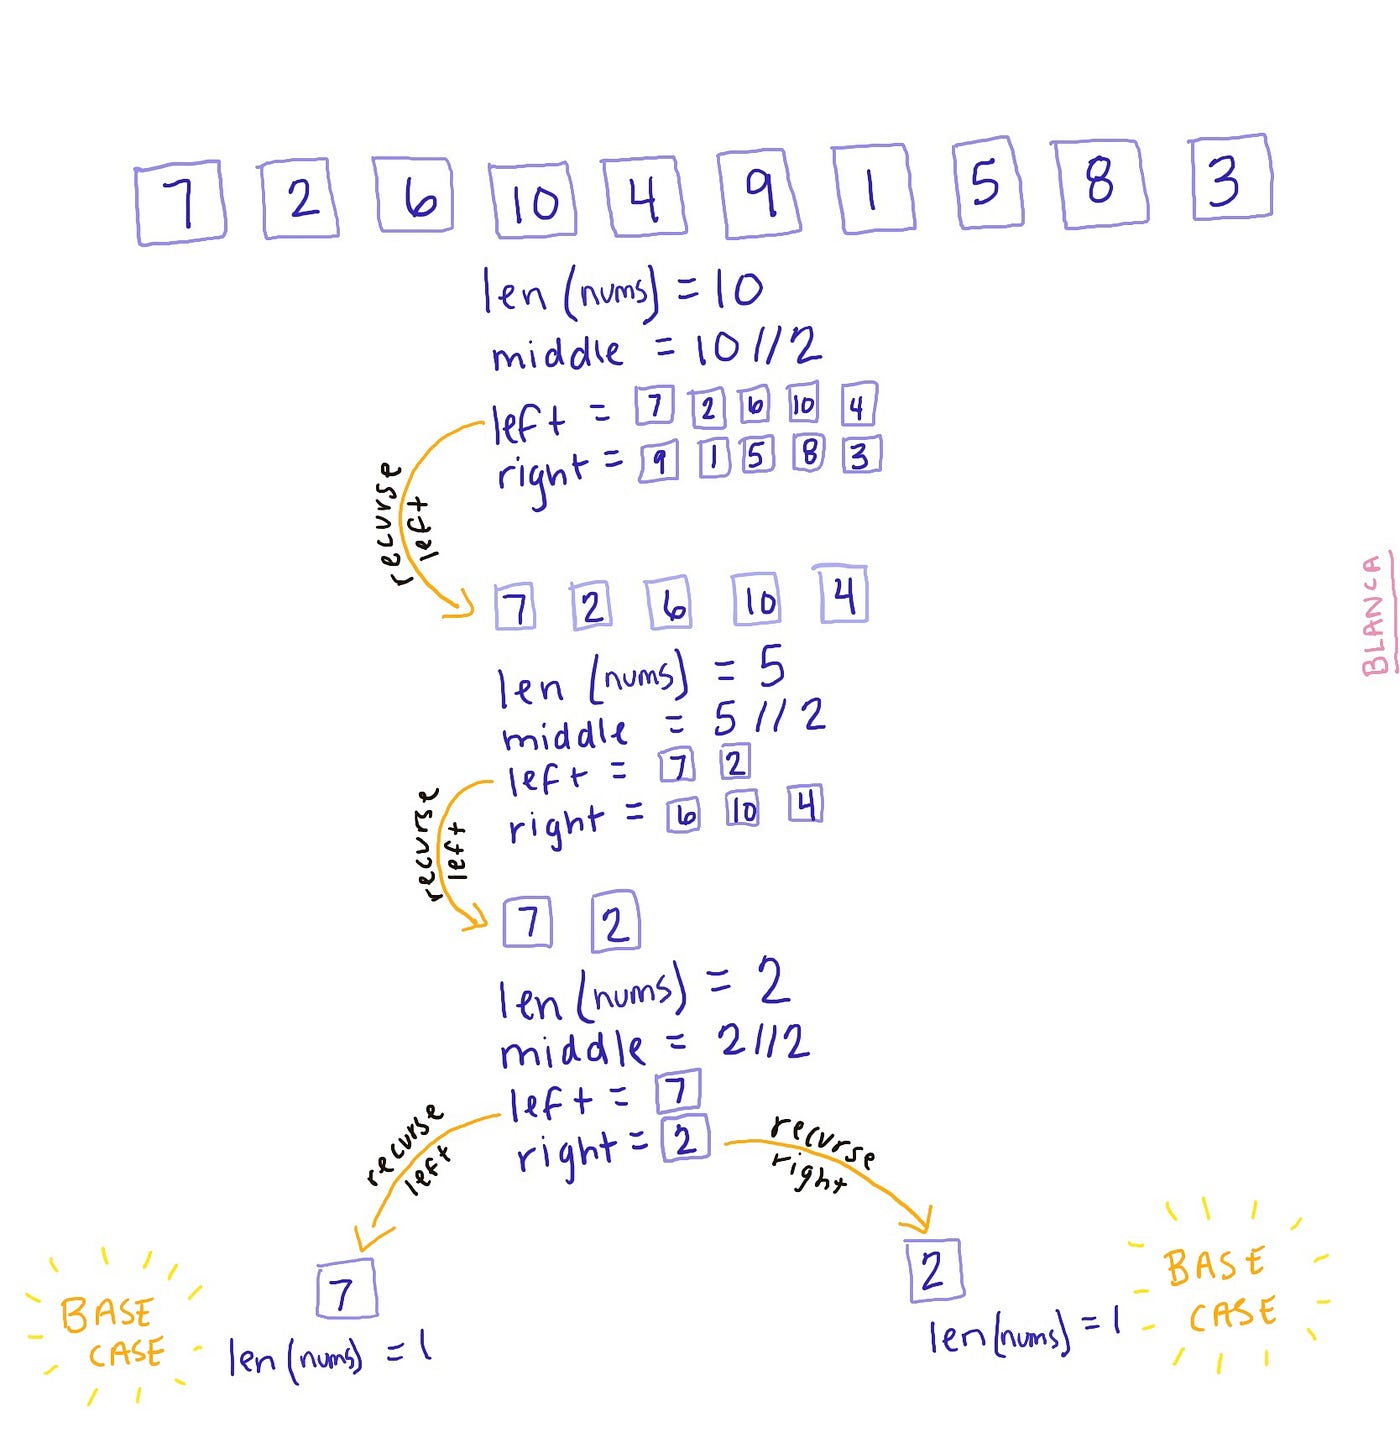 7 2 6 10 4 9 1 5 8 3
len (nums) = 10
middle = 10 // 2
left = 7 2 6 10 4
right = 9 1 5 8 3
recurse
left
7 2 6 10 4
len (nums) = 5
middle = 5 // 2
left = 7 2
right = 6 10 4
recurse
left
7 2
len (nums) = 2
middle = 2 // 2
left = 7
right = 2
recurse
left
recurse
right
7
len (nums) = 1
BASE
CASE
2
len (nums) = 1
BASE
CASE
BLANCA